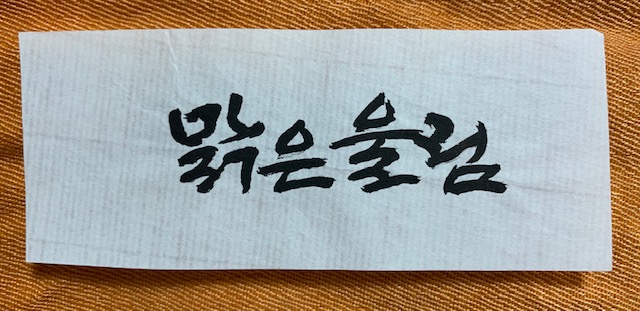 맑은울림